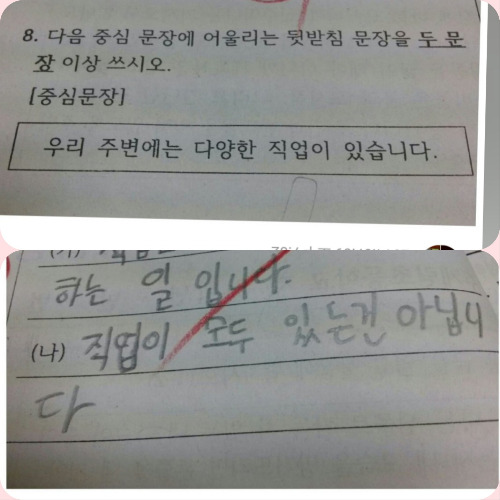 8. 다음 중심 문장에 어울리는 뒷받침 문장을 두 문
장 이상 쓰시오.
[중심문장]
우리 주변에는 다양한 직업이 있습니다.
하는 일 입니다.
(나) 직업이 모두 있는건 아닙니
다